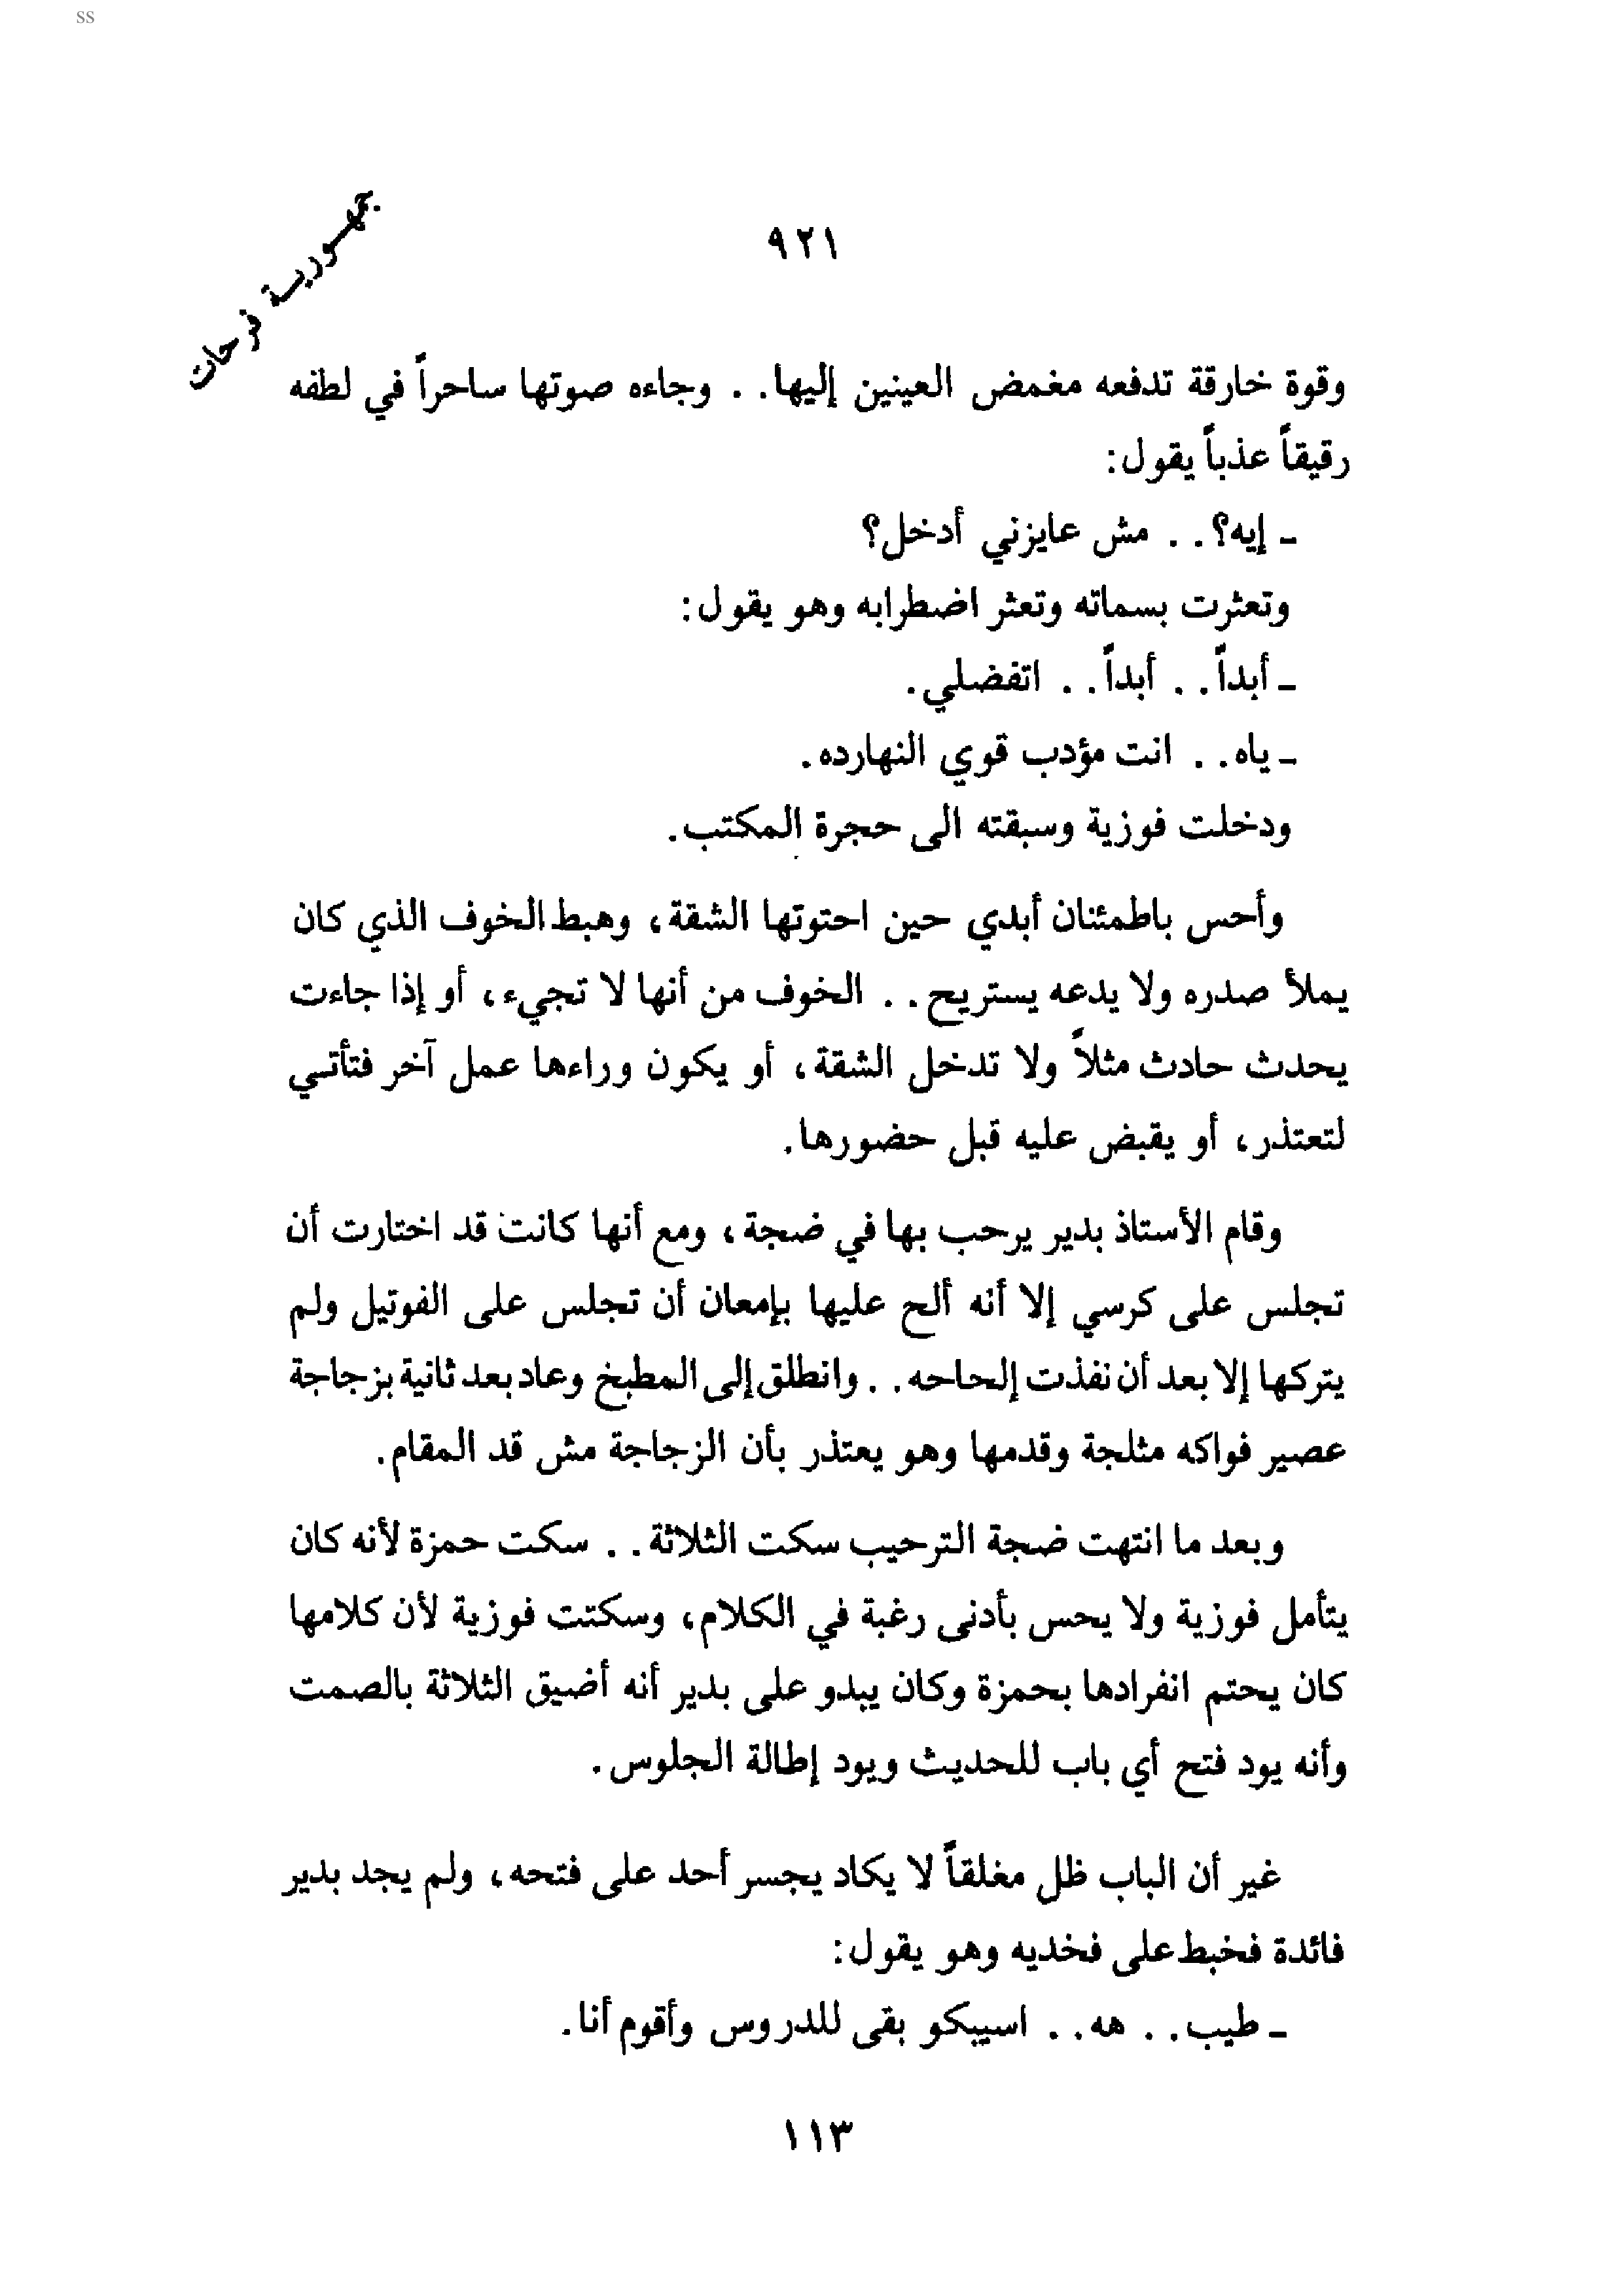 ss
جمهورية فرحات
٩٢١
وقوة خارقة تدفعه مغمض العينين إليها. . وجاءه صوتها ساحراً في لطفه
رقيقاً عذباً يقول:
ـ إيه؟. . مش عايزني أدخل؟
وتعثرت بسماته وتعثر اضطرابه وهو يقول:
ـ أبداً. . أبداً. . اتفضلي.
ـ ياه. . انت مؤدب قوي النهارده.
ودخلت فوزية وسبقته الى حجرة المكتب.
وأحس باطمئنان أبدي حين احتوتها الشقة، وهبط الخوف الذي كان
يملأ صدره ولا يدعه يستريح. . الخوف من أنها لا تجيء، أو إذا جاءت
يحدث حادث مثلاً ولا تدخل الشقة، أو يكون وراءها عمل آخر فتأتي
لتعتذر، أو يقبض عليه قبل حضورها.
وقام الأستاذ بدير يرحب بها في ضجة، ومع أنها كانت قد اختارت أن
تجلس على كرسي إلا أنه ألح عليها بإمعان أن تجلس على الفوتيل ولم
يتركها إلا بعد أن نفذت إلحاحه. . وانطلق إلى المطبخ وعاد بعد ثانية بزجاجة
عصير فواكه مثلجة وقدمها وهو يعتذر بأن الزجاجة مش قد المقام.
وبعد ما انتهت ضجة الترحيب سكت الثلاثة. . سكت حمزة لأنه كان
يتأمل فوزية ولا يحس بأدنى رغبة في الكلام، وسكتت فوزية لأن كلامها
كان يحتم انفرادها بحمزة وكان يبدو على بدير أنه أضيق الثلاثة بالصمت
وأنه يود فتح أي باب للحديث ويود إطالة الجلوس.
غير أن الباب ظل مغلقاً لا يكاد يجسر أحد على فتحه، ولم يجد بدير
فائدة فخبط على فخديه وهو يقول:
ـ طيب. . هه. . اسيبكو بقى للدروس وأقوم أنا.
١١٣